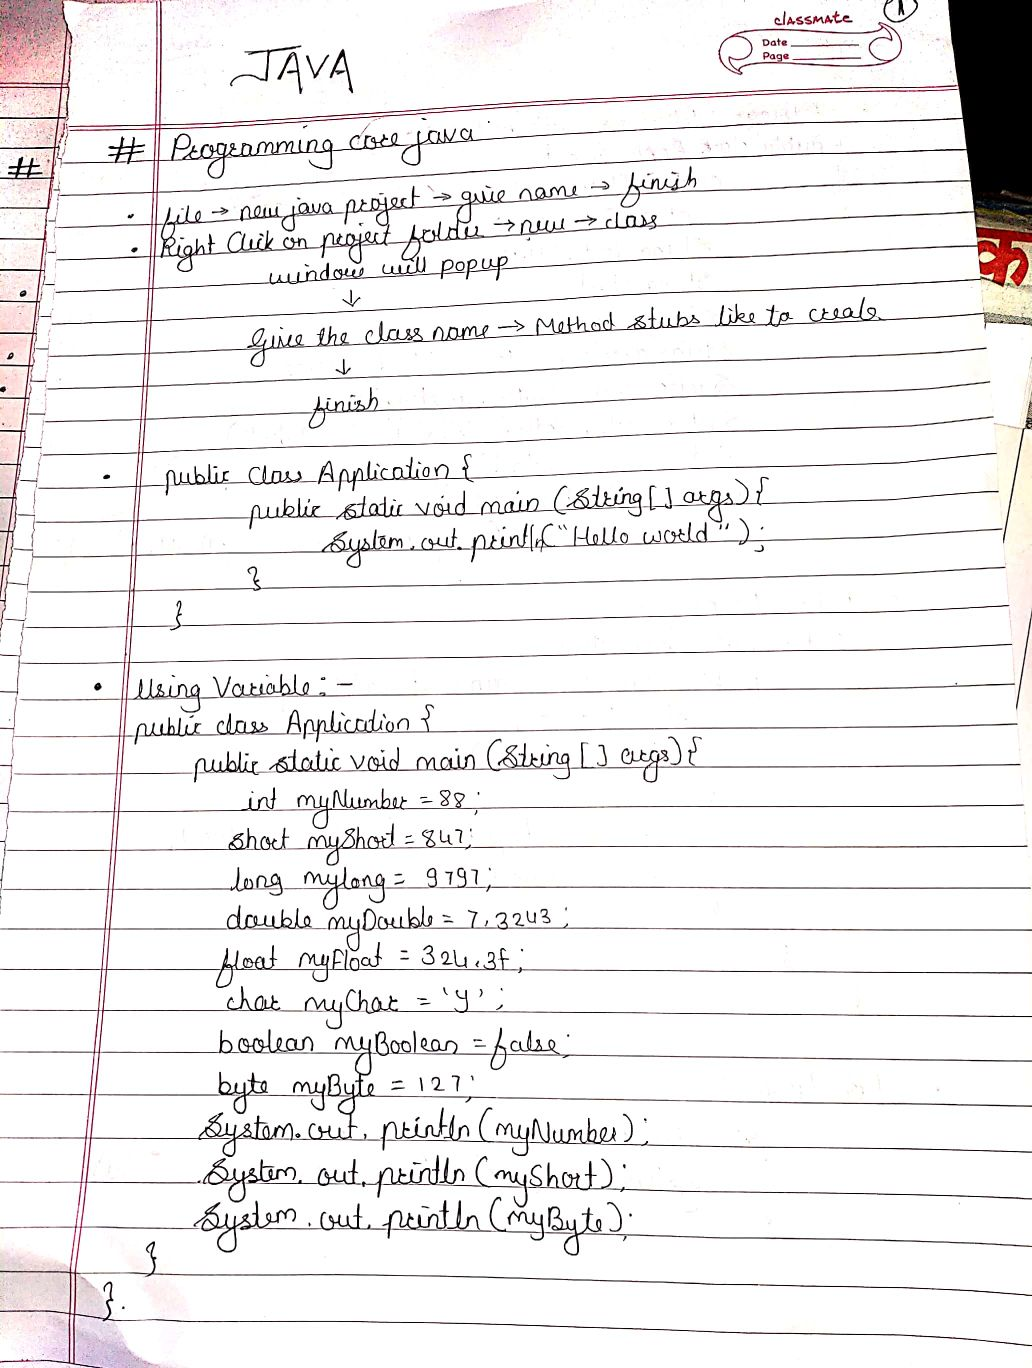 classmate
Date
Page
JAVA
# Programming core java
#
• file → new java project → give name → finish
• Right Click on project folder → new → class
window will popup
↓
Give the class name → Method stubs like to create
↓
finish
• public Class Application {
public static void main (String[] args) {
System.out.println("Hello world");
}
}
• Using Variable :-
public class Application {
public static void main (String [] args) {
int myNumber = 88;
short myShort = 847;
long mylong = 9797;
double myDouble = 7.3243;
float myFloat = 324.3f;
char myChar = 'y';
boolean myBoolean = false;
byte myByte = 127;
System.out.println(myNumber);
System.out.println(myShort);
System.out.println(myByte);
}
}.
क